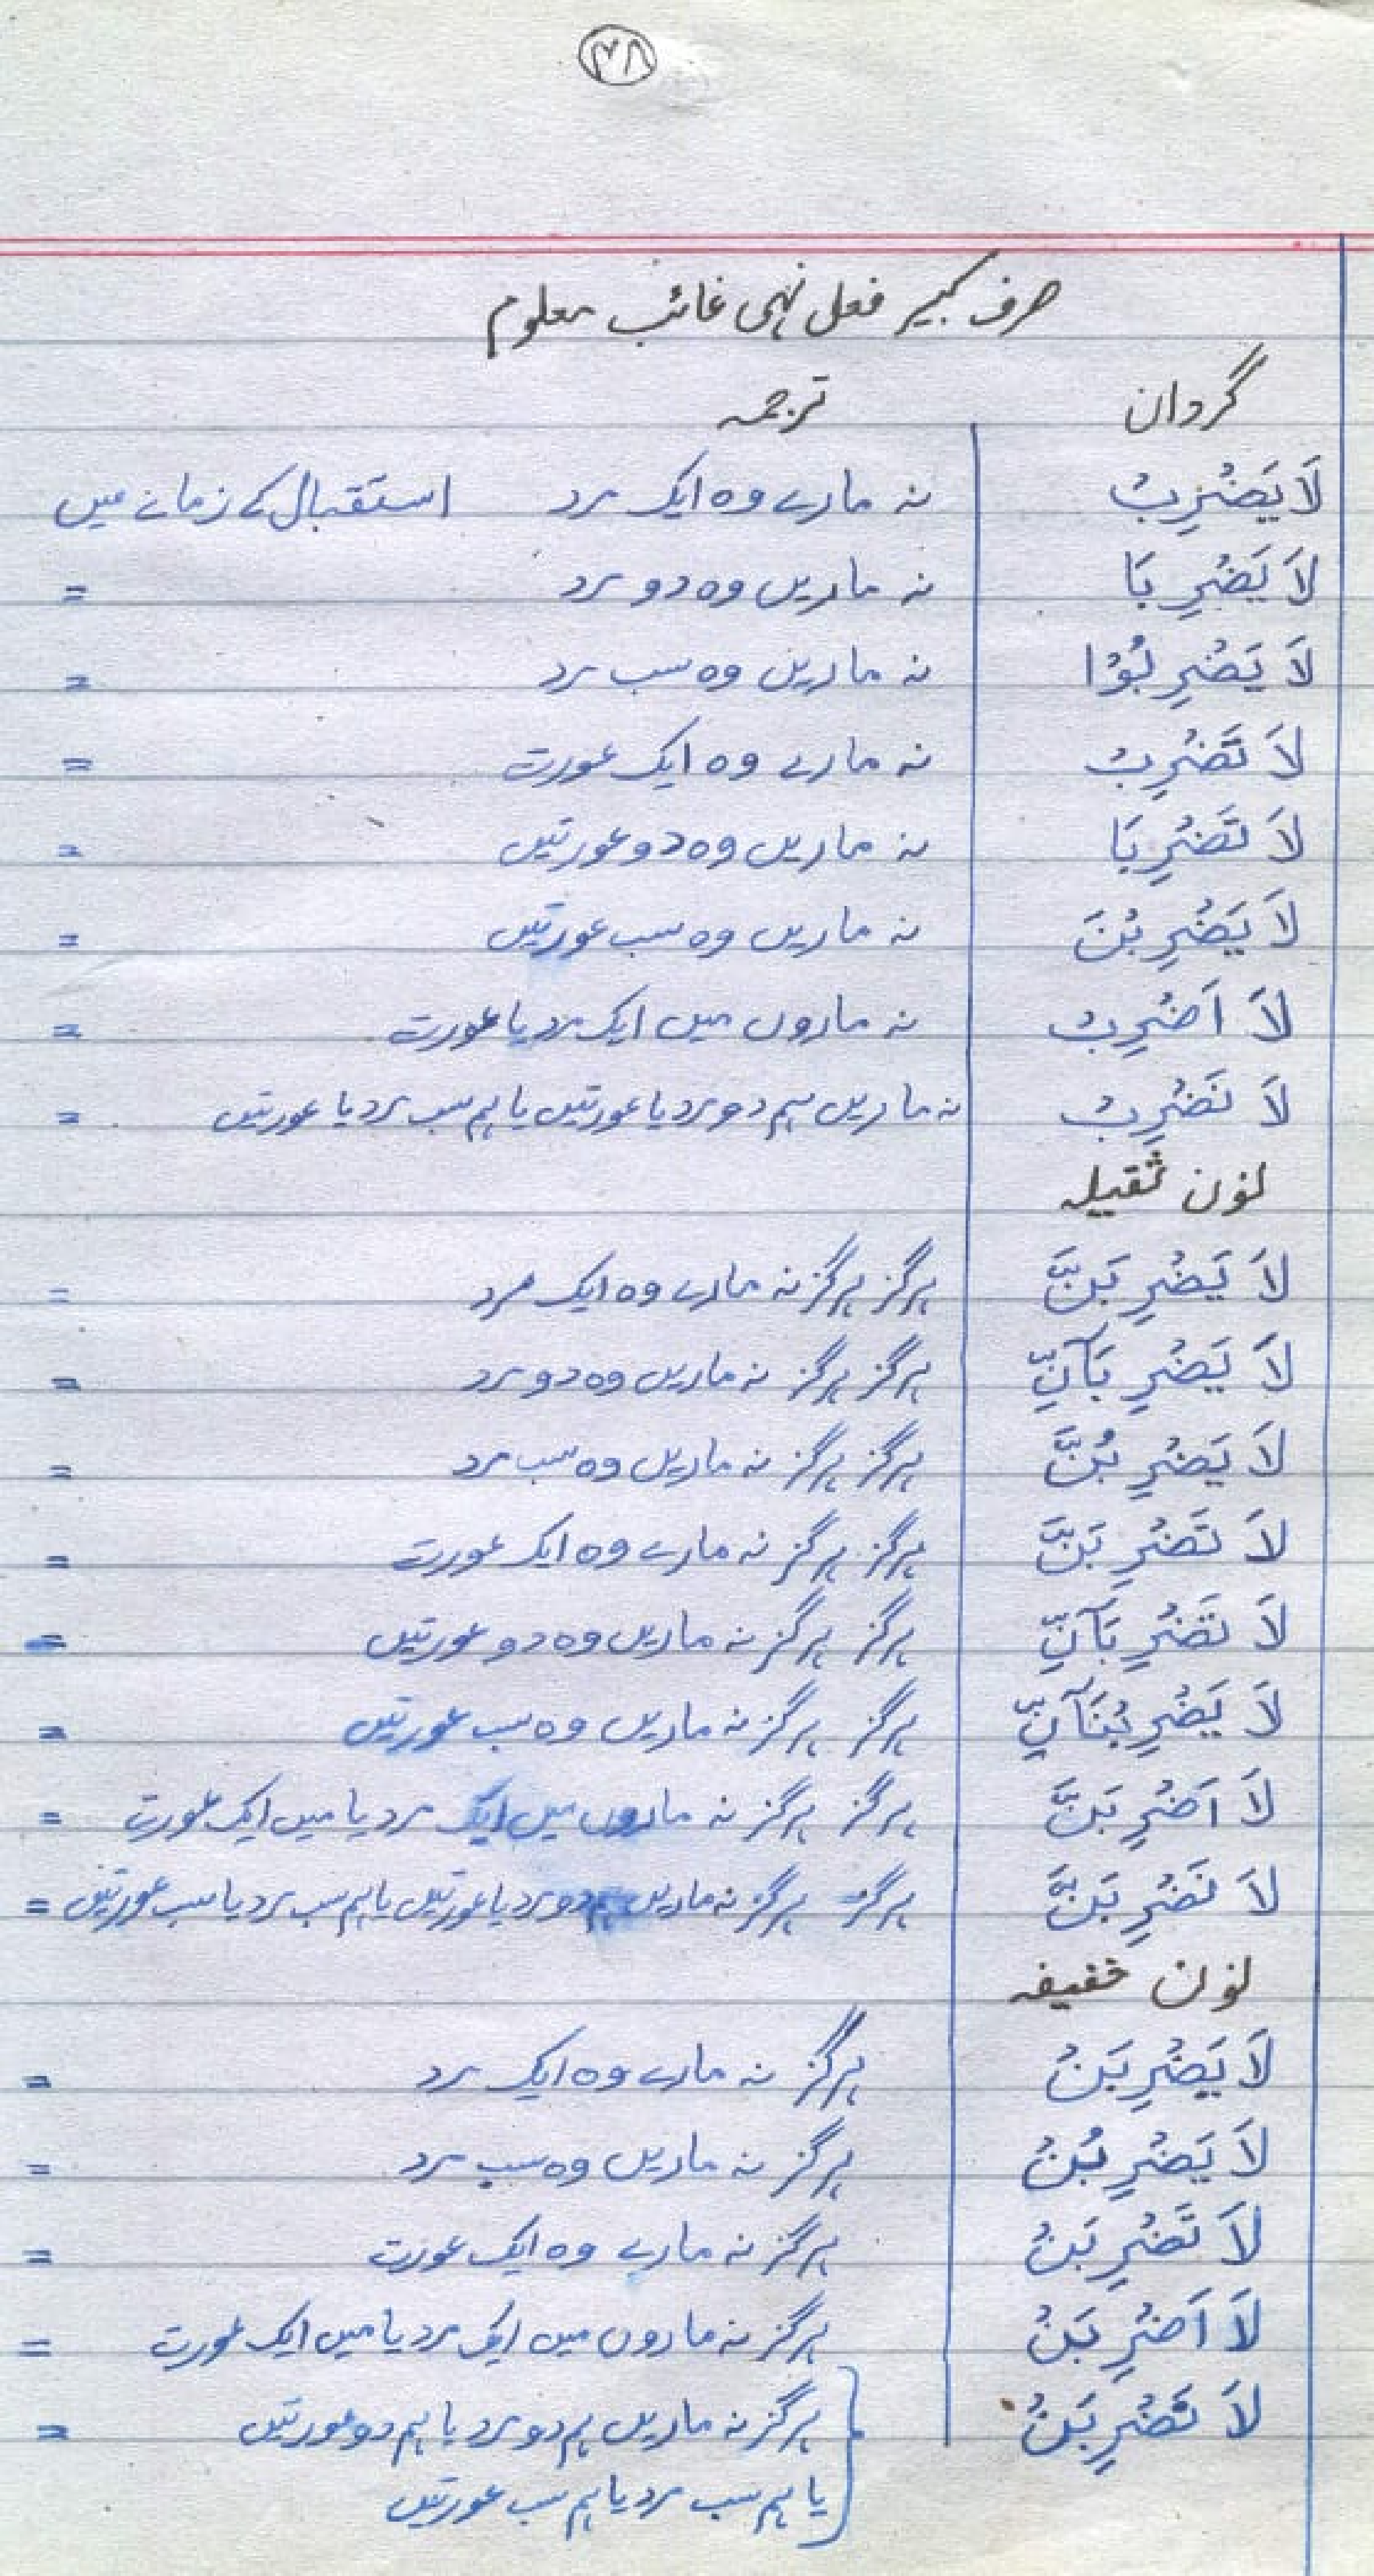 ۳۸
صرف کبیر فعل نہی غائب معلوم
گردان ترجمہ
لَا يَضْرِبْ نہ مارے وہ ایک مرد استقبال کے زمانے میں
لَا يَضْرِبَا نہ ماریں وہ دو مرد =
لَا يَضْرِبُوْا نہ ماریں وہ سب مرد =
لَا تَضْرِبْ نہ مارے وہ ایک عورت =
لَا تَضْرِبَا نہ ماریں وہ دو عورتیں =
لَا يَضْرِبْنَ نہ ماریں وہ سب عورتیں =
لَا اَضْرِبْ نہ ماروں میں ایک مرد یا عورت =
لَا نَضْرِبْ نہ ماریں ہم دو مرد یا عورتیں یا ہم سب مرد یا عورتیں =
نون ثقیلہ
لَا يَضْرِبَنَّ ہرگز ہرگز نہ مارے وہ ایک مرد =
لَا يَضْرِبَآنِّ ہرگز ہرگز نہ ماریں وہ دو مرد =
لَا يَضْرِبُنَّ ہرگز ہرگز نہ ماریں وہ سب مرد =
لَا تَضْرِبَنَّ ہرگز ہرگز نہ مارے وہ ایک عورت =
لَا تَضْرِبَآنِّ ہرگز ہرگز نہ ماریں وہ دو عورتیں =
لَا يَضْرِبْنَآنِّ ہرگز ہرگز نہ ماریں وہ سب عورتیں =
لَا اَضْرِبَنَّ ہرگز ہرگز نہ ماروں میں ایک مرد یا میں ایک عورت =
لَا نَضْرِبَنَّ ہرگز ہرگز نہ ماریں ہم دو مرد یا عورتیں یا ہم سب مرد یا سب عورتیں =
نون خفیفہ
لَا يَضْرِبَنْ ہرگز نہ مارے وہ ایک مرد =
لَا يَضْرِبُنْ ہرگز نہ ماریں وہ سب مرد =
لَا تَضْرِبَنْ ہرگز نہ مارے وہ ایک عورت =
لَا اَضْرِبَنْ ہرگز نہ ماروں میں ایک مرد یا میں ایک عورت =
لَا نَضْرِبَنْ ہرگز نہ ماریں ہم دو مرد یا ہم دو عورتیں =
یا ہم سب مرد یا ہم سب عورتیں